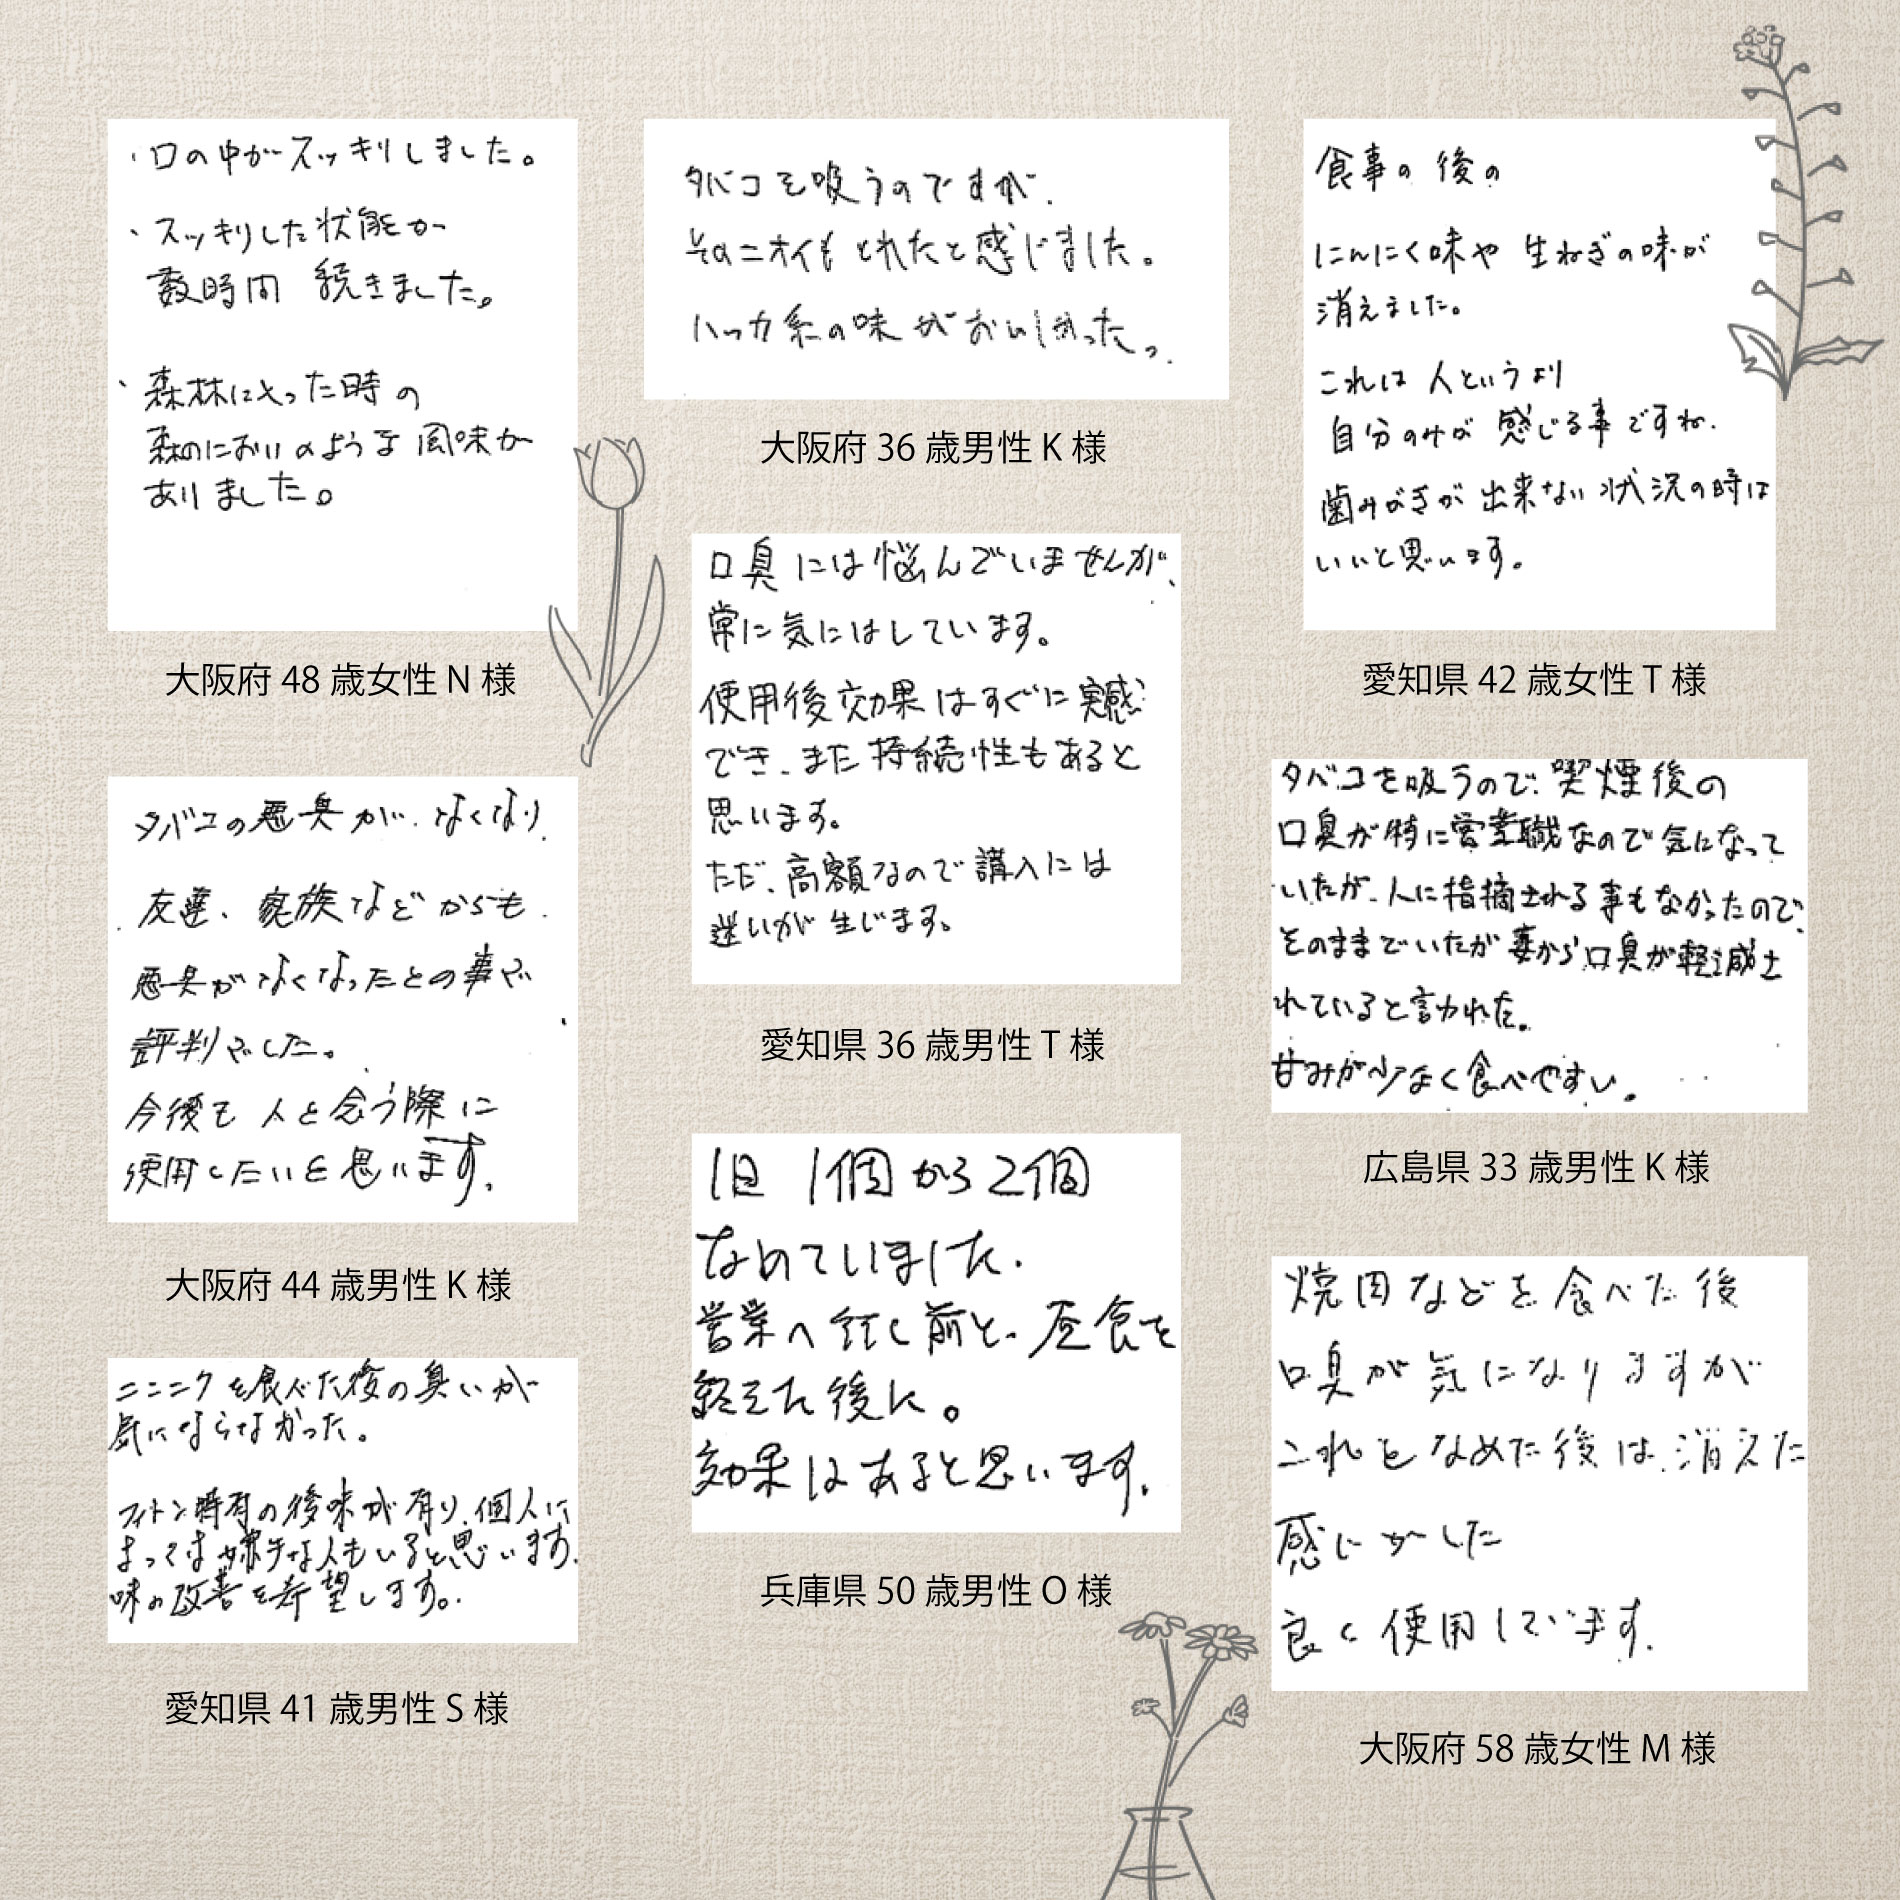 ・口の中がスッキリしました。
・スッキリした状態が
数時間 続きました。
・森林に入った時の
森のにおいのような風味が
ありました。
大阪府 48 歳女性 N 様
タバコの悪臭が、なくなり
友達、家族などからも
悪臭がなくなったとの事で
評判でした。
今後も 人と会う際に
使用したいと思います。
大阪府 44 歳男性 K 様
ニンニクを食べた後の臭いが
気にならなかった。
フィトン特有の後味が有り、個人に
よっては嫌手な人もいると思います。
味の改善を希望します。
愛知県 41 歳男性 S 様
タバコを吸うのですが、
そのニオイもとれたと感じました。
ハッカ系の味がおいしかった。
大阪府 36 歳男性 K 様
口臭には悩んでいませんが、
常に気にはしています。
使用後効果はすぐに実感
でき、また持続性もあると
思います。
ただ、高額なので購入には
迷いが生じます。
愛知県 36 歳男性 T 様
1日 1個から2個
なめていました。
営業へ行く前と、昼食を
終えた後に。
効果はあると思います。
兵庫県 50 歳男性 O 様
食事の後の
にんにく味や 生ねぎの味が
消えました。
これは 人というより
自分のみが 感じる事ですね。
歯みがきが 出来ない状況の時は
いいと思います。
愛知県 42 歳女性 T 様
タバコを吸うので、喫煙後の
口臭が特に営業職なので気になって
いたが、人に指摘される事もなかったので、
そのままでいたが妻から口臭が軽減さ
れていると言われた。
甘みが少なく食べやすい。
広島県 33 歳男性 K 様
焼肉などを食べた後
口臭が気になりますが
これをなめた後は、消えた
感じがした
良く使用しています。
大阪府 58 歳女性 M 様